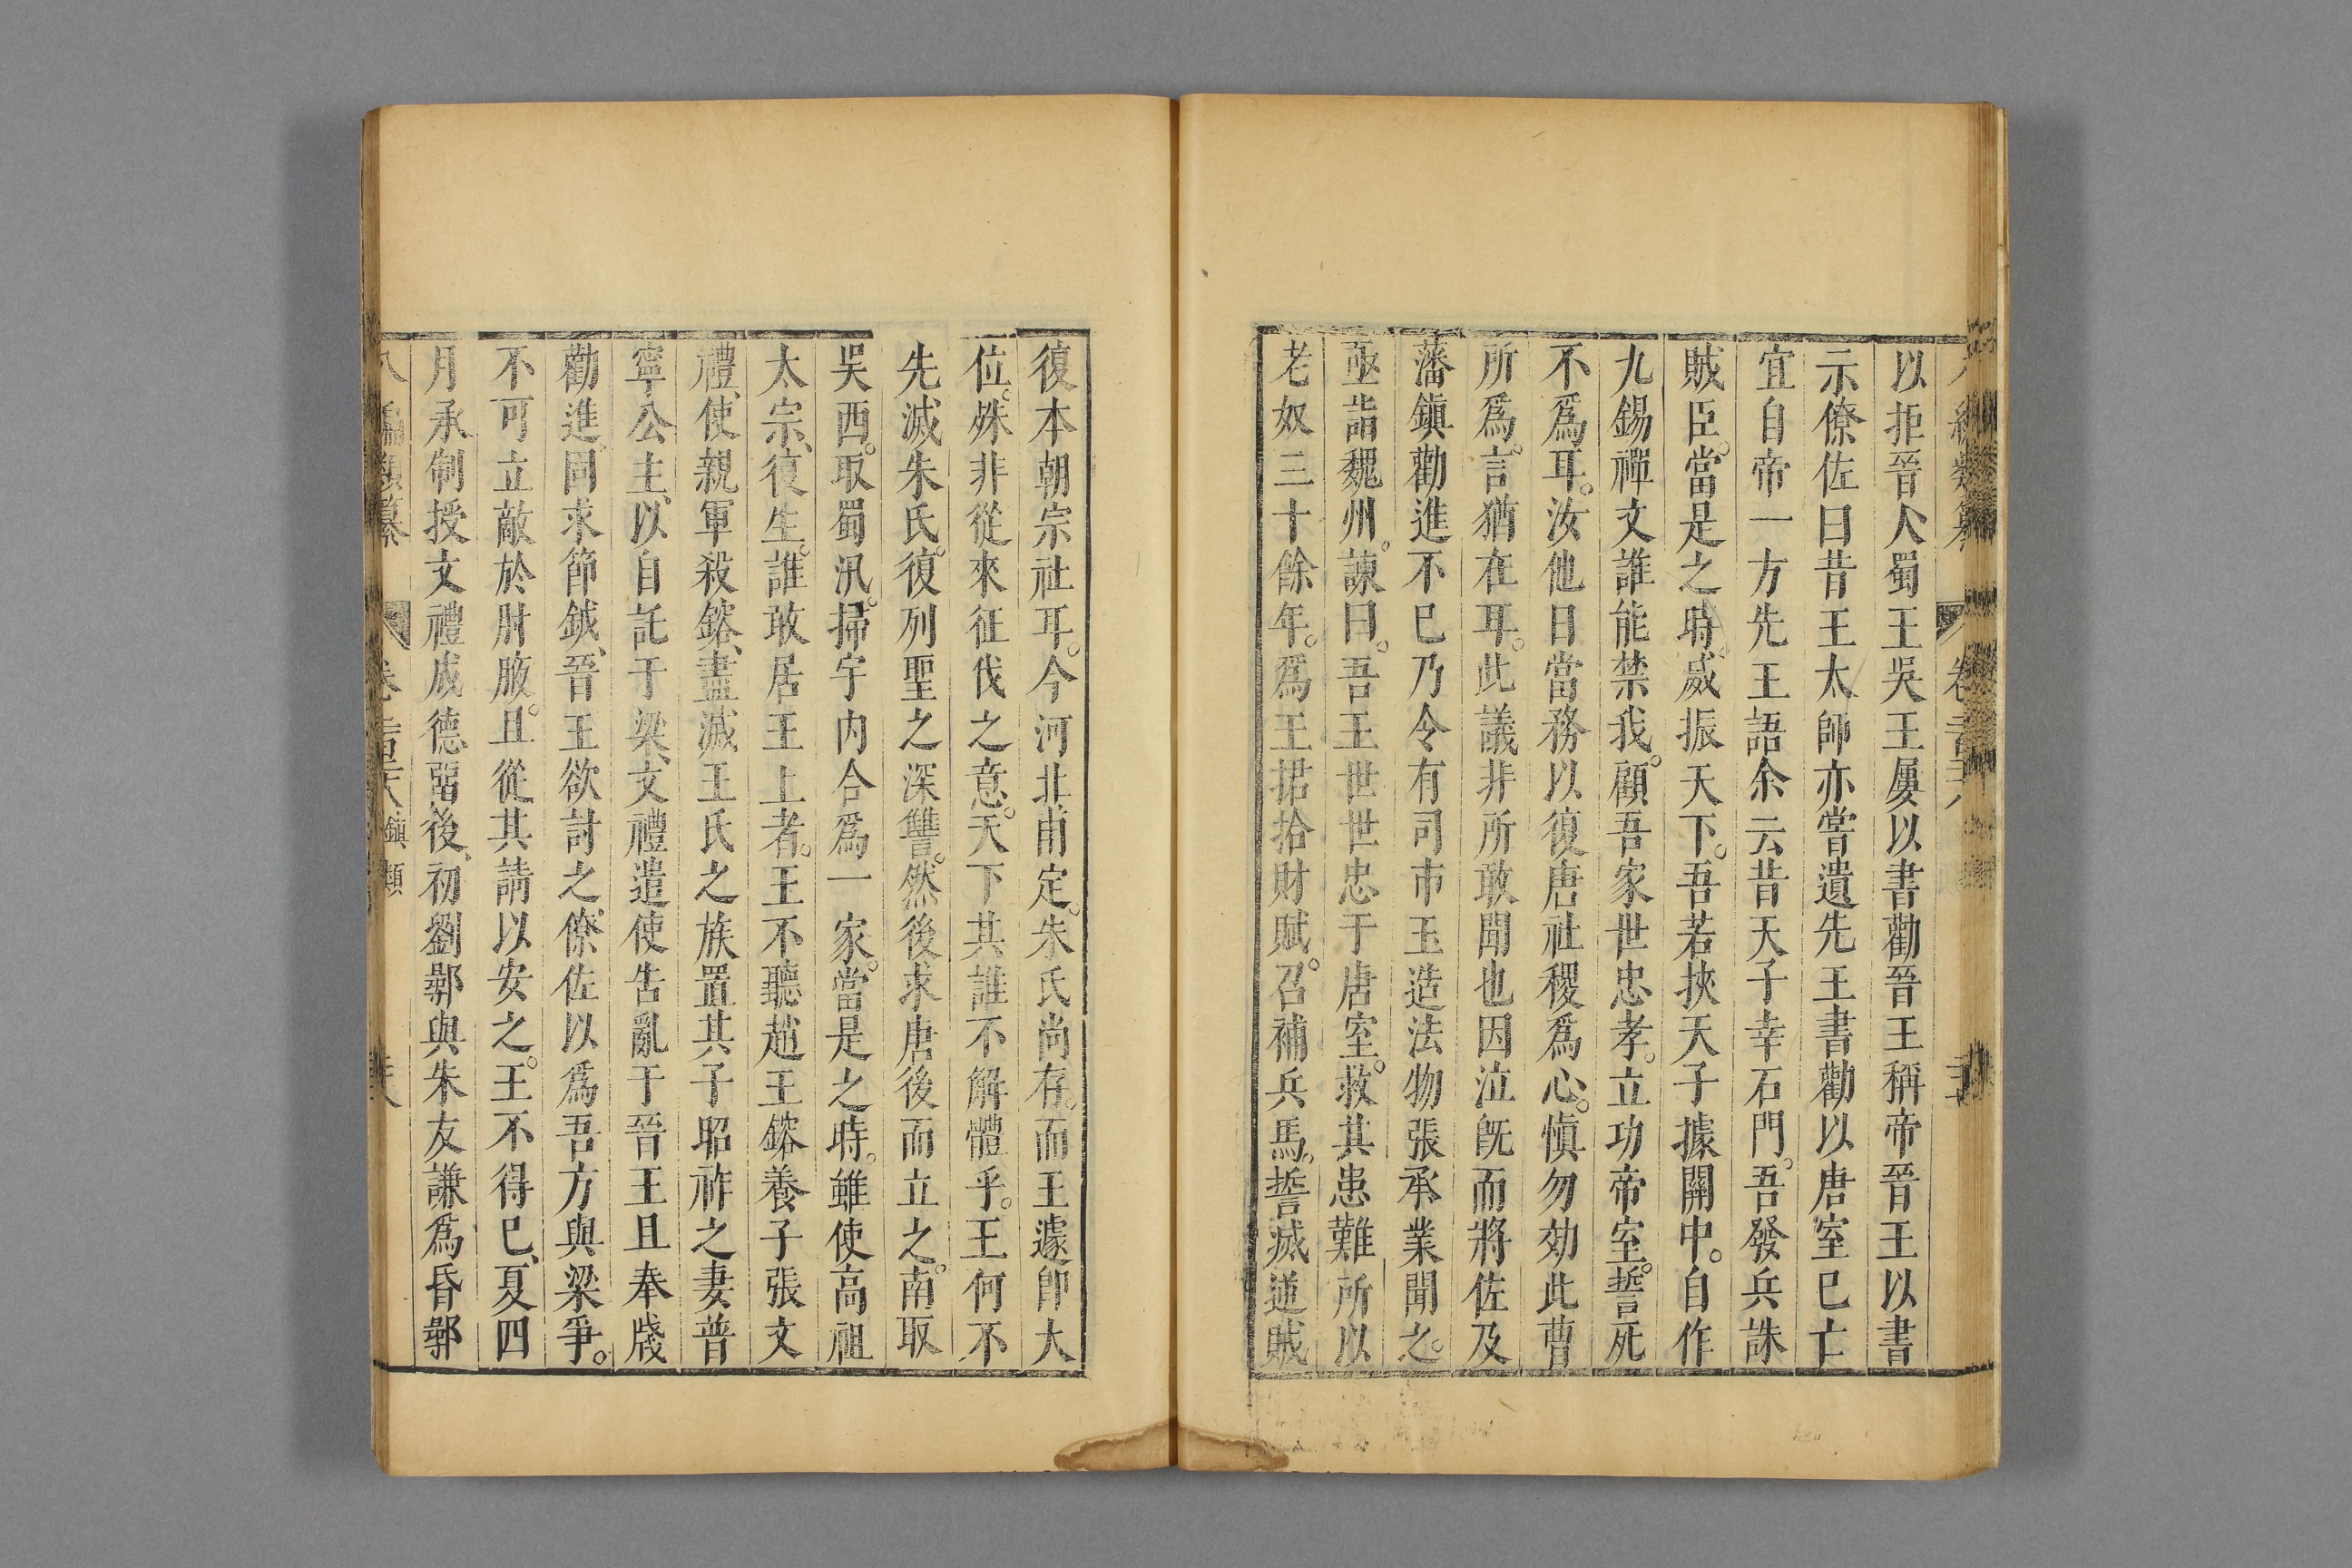 以拒晉人蜀王吳王屢以書勸晉王稱帝晉王以書
示僚佐曰昔王太師亦嘗遺先王書勸以唐室已亡
宜自帝一方先王語余云昔天子幸石門。吾發兵誅
賊臣。當是之時。威振天下。吾若挾天子據關中。自作
九錫禪文誰能禁我。顧吾家世忠孝。立功帝室。誓死
不爲耳。汝他日當務以復唐社稷爲心。愼勿効此曹
所爲。言猶在耳。此議非所敢聞也因泣既而將佐及
藩鎭勸進不已乃令有司市玉造法物張承業聞之。
亟詣魏州。諫曰。吾王世世忠于唐室。救其患難所以
老奴三十餘年。爲王捃拾財賦。召補兵馬。誓滅逆賊
復本朝宗社耳。今河北甫定。朱氏尚存。而王遽卽大
位。殊非從來征伐之意。天下其誰不解體乎。王何不
先滅朱氏。復列聖之深讐。然後求唐後而立之。南取
吳西。取蜀汛。掃宇内合爲一家。當是之時。雖使高祖
太宗、復生。誰敢居王上者。王不聽趙王鎔養子張文
禮、使親軍殺鎔、盡滅王氏之族置其子昭祚之妻普
寧公主、以自託于梁、文禮遣使告亂于晉王且奉牋
勸進、因求節鉞、晉王欲討之。僚佐以爲吾方與梁爭。
不可立敵於肘腋。且從其請以安之。王不得已、夏四
月承制授文禮成德畱後、初劉鄩與朱友謙爲昏鄩
八編類纂 卷 鎭類